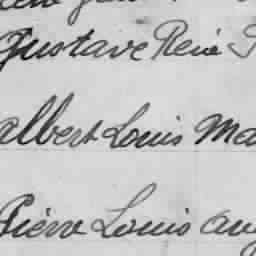 Gustave René
Albert Louis Ma
Pierre Louis Aug